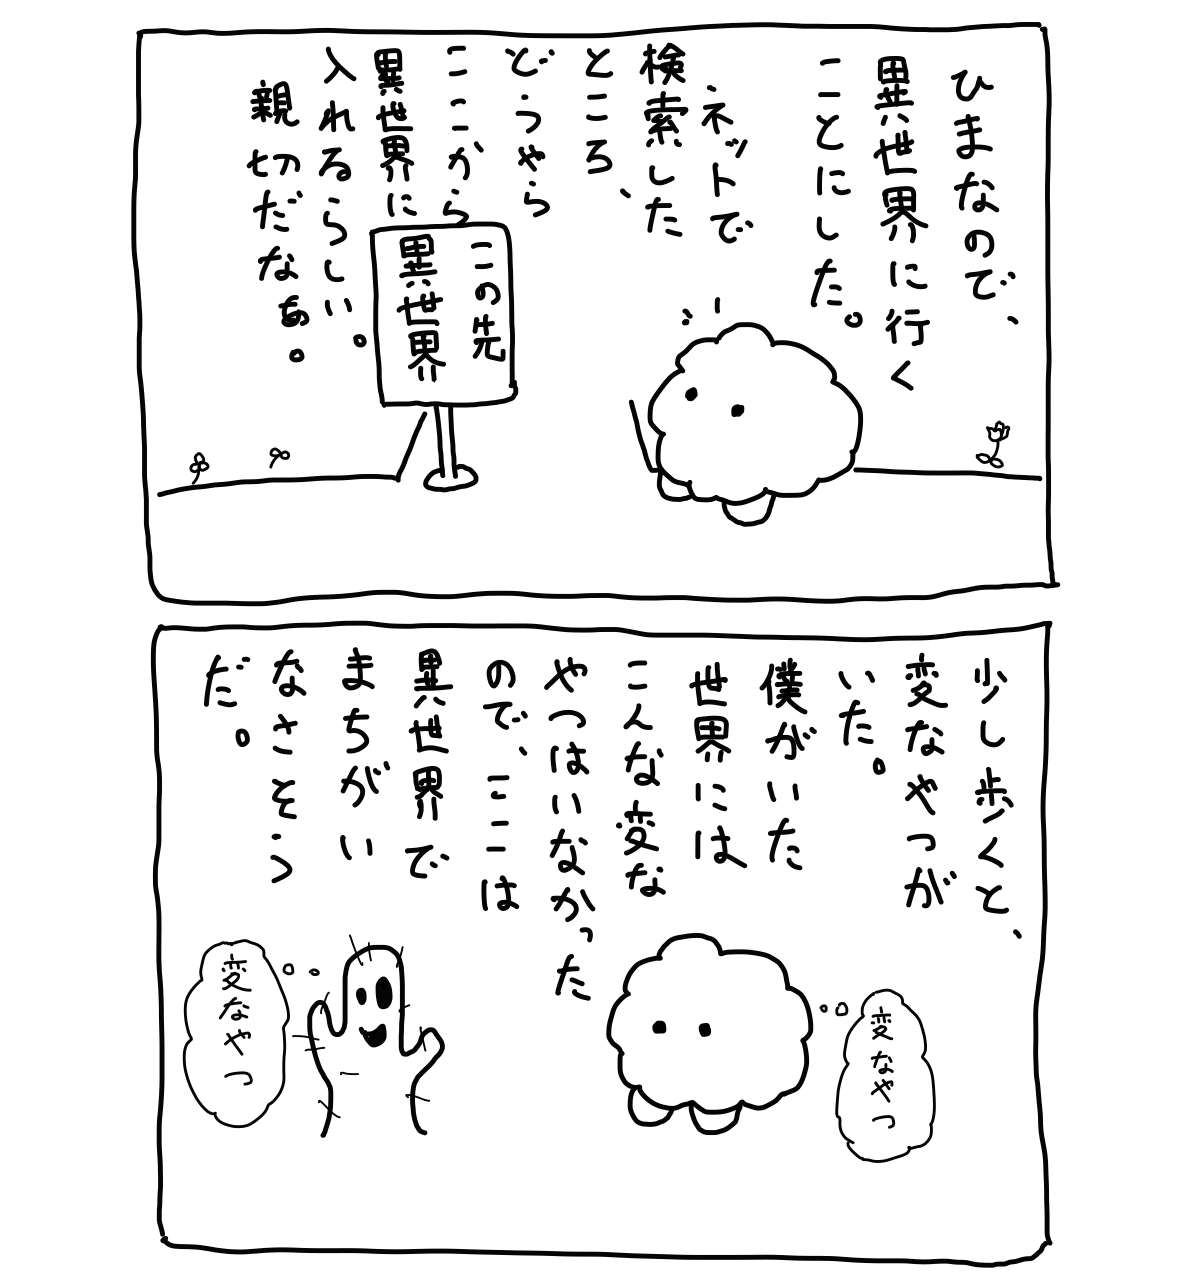 ひまなので、
異世界に行く
ことにした。
ネットで
検索した
ところ、
どうやら
ここから
異世界に
入れるらしい。
親切だなぁ。
この先
異世界
少し歩くと、
変なやつが
いた。
僕がいた
世界には
こんな変な
やつはいなかった
ので、ここは
異世界で
まちがい
なさそう
だ。
変なやつ
変なやつ